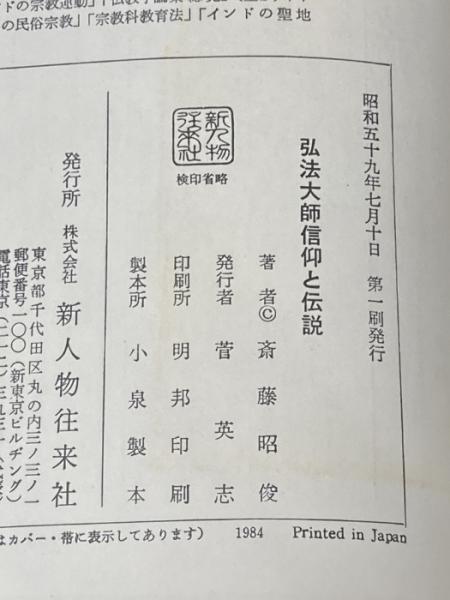 ドの宗教運動」「仏教学論集
の民俗宗教」「宗教科教育法」「インドの聖地
昭和五十九年七月十日 第一刷発行
弘法大師信仰と伝説
著者© 斎藤昭俊
発行者 菅英志
印刷所 明邦印刷
製本所 小泉製本
新人物往来社
検印省略
発行所 株式会社 新人物往来社
東京都千代田区丸の内三ノ三ノ一
郵便番号一〇〇(新東京ビルヂング)
電話東京(二一二)三九三一
はカバー・帯に表示してあります)
1984 Printed in Japan